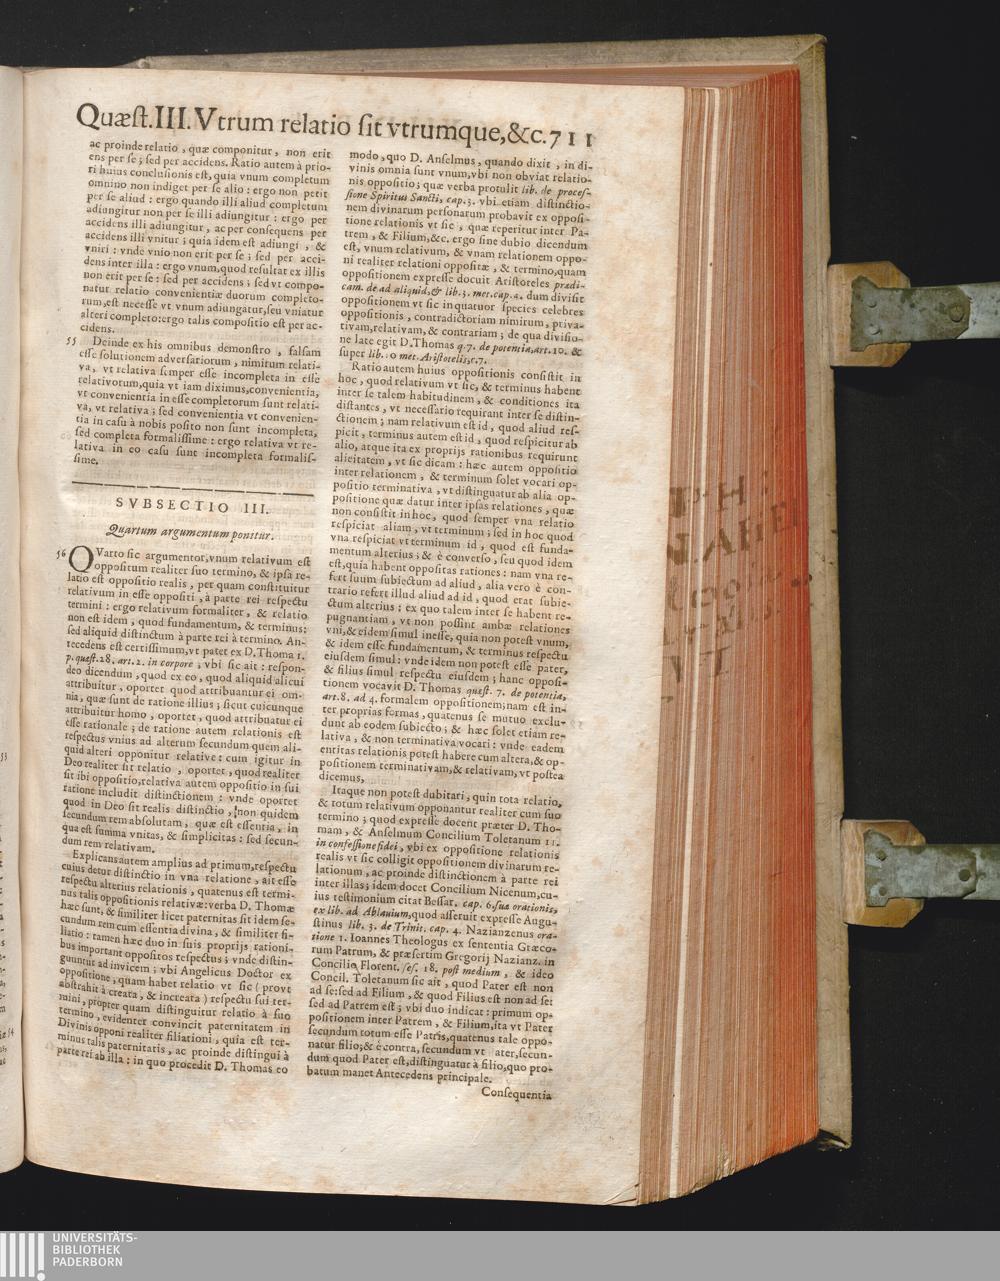 Quæst.III.Vtrum relatio sit vtrumque,&c.711
ac proinde relatio, quæ componitur, non erit
ens per se; sed per accidens. Ratio autem à prio-
ri huius conclusionis est, quia vnum completum
omnino non indiget per se alio: ergo non petit
per se aliud: ergo quando illi aliud completum
adiungitur non per se illi adiungitur: ergo per
accidens illi adiungitur, ac per consequens per
accidens illi vnitur; quia idem est adiungi, &
vniri: vnde vnio non erit per se; sed per acci-
dens inter illa: ergo vnum, quod resultat ex illis
non erit per se: sed per accidens; sed vt compo-
natur relatio convenientiæ duorum completo-
rum, est necesse vt vnum adiungatur, seu vniatur
alteri completo: ergo talis compositio est per ac-
cidens.
55 Deinde ex his omnibus demonstro, falsam
esse solutionem adversariorum, nimirum relati-
va, vt relativa semper esse incompleta in esse
relativorum, quia vt iam diximus, convenientia,
vt convenientia in esse completorum sunt relati-
va, vt relativa; sed convenientia vt convenien-
tia in casu à nobis posito non sunt incompleta,
sed completa formalissime: ergo relativa vt re-
lativa in eo casu sunt incompleta formalis-
sime.
SVBSECTIO III.
Quartum argumentum ponitur.
56 QVarto sic argumentor, vnum relativum est
oppositum realiter suo termino, & ipsa re-
latio est oppositio realis, per quam constituitur
relativum in esse oppositi, à parte rei respectu
termini: ergo relativum formaliter, & relatio
non est idem, quod fundamentum, & terminus:
sed aliquid distinctum à parte rei à termino. An-
tecedens est certissimum, vt patet ex D. Thoma 1.
p. quæst. 28. art. 2. in corpore; vbi sic ait: respon-
deo dicendum, quod ex eo, quod aliquid alicui
attribuitur, oportet quod attribuantur ei om-
nia, quæ sunt de ratione illius; sicut cuicunque
attribuitur homo, oportet, quod attribuatur ei
esse rationale; de ratione autem relationis est
respectus vnius ad alterum secundum quem ali-
quid alteri opponitur relative: cum igitur in
Deo realiter sit relatio, oportet, quod realiter
sit ibi oppositio, relativa autem oppositio in sui
ratione includit distinctionem: vnde oportet
quod in Deo sit realis distinctio, non quidem
secundum rem absolutam, quæ est essentia, in
qua est summa vnitas, & simplicitas: sed secun-
dum rem relativam.
Explicans autem amplius ad primum, respectu
cuius detur distinctio in vna relatione, ait esse
respectu alterius relationis, quatenus est termi-
nus talis oppositionis relativæ: verba D. Thomæ
hæc sunt, & similiter licet paternitas sit idem se-
cundum rem cum essentia divina, & similiter fi-
liatio: tamen hæc duo in suis proprijs rationi-
bus important oppositos respectus; vnde distin-
guuntur ad invicem; vbi Angelicus Doctor ex
oppositione, quam habet relatio vt sic (prout
abstrahit à creata, & increata) respectu sui ter-
mini, propter quam distinguitur relatio à suo
termino, evidenter convincit paternitatem in
Divinis opponi realiter filiationi, quia est ter-
minus talis paternitatis, ac proinde distingui à
parte rei ab illa: in quo procedit D. Thomas eo
modo, quo D. Anselmus, quando dixit, in di-
vinis omnia sunt vnum, vbi non obviat relatio-
nis oppositio; quæ verba protulit lib. de proces-
sione Spiritus Sancti, cap. 3. vbi etiam distinctio-
nem divinarum personarum probavit ex opposi-
tione relationis vt sic, quæ reperitur inter Pa-
trem, & Filium, &c. ergo sine dubio dicendum
est, vnum relativum, & vnam relationem oppo-
ni realiter relationi oppositæ, & termino, quam
oppositionem expresse docuit Aristoteles prædi-
cam. de ad aliquid, & lib. 5. met. cap. 4. dum divisit
oppositionem vt sic in quatuor species celebres
oppositionis, contradictoriam nimirum, priva-
tivam, relativam, & contrariam; de qua divisio-
ne late egit D. Thomas q. 7. de potentia, art. 10. &
super lib. 10 met. Aristotelis, c. 7.
Ratio autem huius oppositionis consistit in
hoc, quod relativum vt sic, & terminus habent
inter se talem habitudinem, & conditiones ita
distantes, vt necessario requirant inter se distin-
ctionem; nam relativum est id, quod aliud res-
picit, terminus autem est id, quod respicitur ab
alio, atque ita ex proprijs rationibus requirunt
alieitatem, vt sic dicam: hæc autem oppositio
inter relationem, & terminum solet vocari op-
positio terminativa, vt distinguatur ab alia op-
positione quæ datur inter ipsas relationes, quæ
non consistit in hoc, quod semper vna relatio
respiciat aliam, vt terminum; sed in hoc quod
vna respiciat vt terminum id, quod est funda-
mentum alterius; & è converso, seu quod idem
est, quia habent oppositas rationes: nam vna re-
fert suum subiectum ad aliud, alia vero è con-
trario refert illud aliud ad id, quod erat subie-
ctum alterius: ex quo talem inter se habent re-
pugnantiam, vt non possint ambæ relationes
vni, & eidem simul inesse, quia non potest vnum,
& idem esse fundamentum, & terminus respectu
eiusdem simul: vnde idem non potest esse pater,
& filius simul respectu eiusdem; hanc opposi-
tionem vocavit D. Thomas quest. 7. de potentia,
art. 8. ad 4. formalem oppositionem; nam est in-
ter proprias formas, quatenus se mutuo exclu-
dunt ab eodem subiecto; & hæc solet etiam re-
lativa, & non terminativa vocari: vnde eadem
entitas relationis potest habere cum altera, & op-
positionem terminativam, & relativam, vt postea
dicemus,
Itaque non potest dubitari, quin tota relatio,
& totum relativum opponantur realiter cum suo
termino; quod expresse docent præter D. Tho-
mam, & Anselmum Concilium Toletanum 11.
in confessione fidei, vbi ex oppositione relationis
realis vt sic colligit oppositionem divinarum re-
lationum, ac proinde distinctionem à parte rei
inter illas; idem docet Concilium Nicenum, cu-
ius testimonium citat Bessar. cap. 6. suæ orationis,
ex lib. ad Ablauium, quod asseruit expresse Augu-
stinus lib. 5. de Trinit. cap. 4. Nazianzenus ora-
tione 1. Ioannes Theologus ex sententia Græco-
rum Patrum, & præsertim Gregorij Nazianz. in
Concilio Florent. ses. 18. post medium, & ideo
Concil. Toletanum sic ait, quod Pater est non
ad se: sed ad Filium, & quod Filius est non ad se:
sed ad Patrem est; vbi duo indicat: primum op-
positionem inter Patrem, & Filium, ita vt Pater
secundum totum esse Patris, quatenus tale oppo-
natur filio; & è contra, secundum vt ater, secun-
dum quod Pater est, distinguatur à filio, quo pro-
batum manet Antecedens principale.
Consequentia
UNIVERSITÄTS-
BIBLIOTHEK
PADERBORN